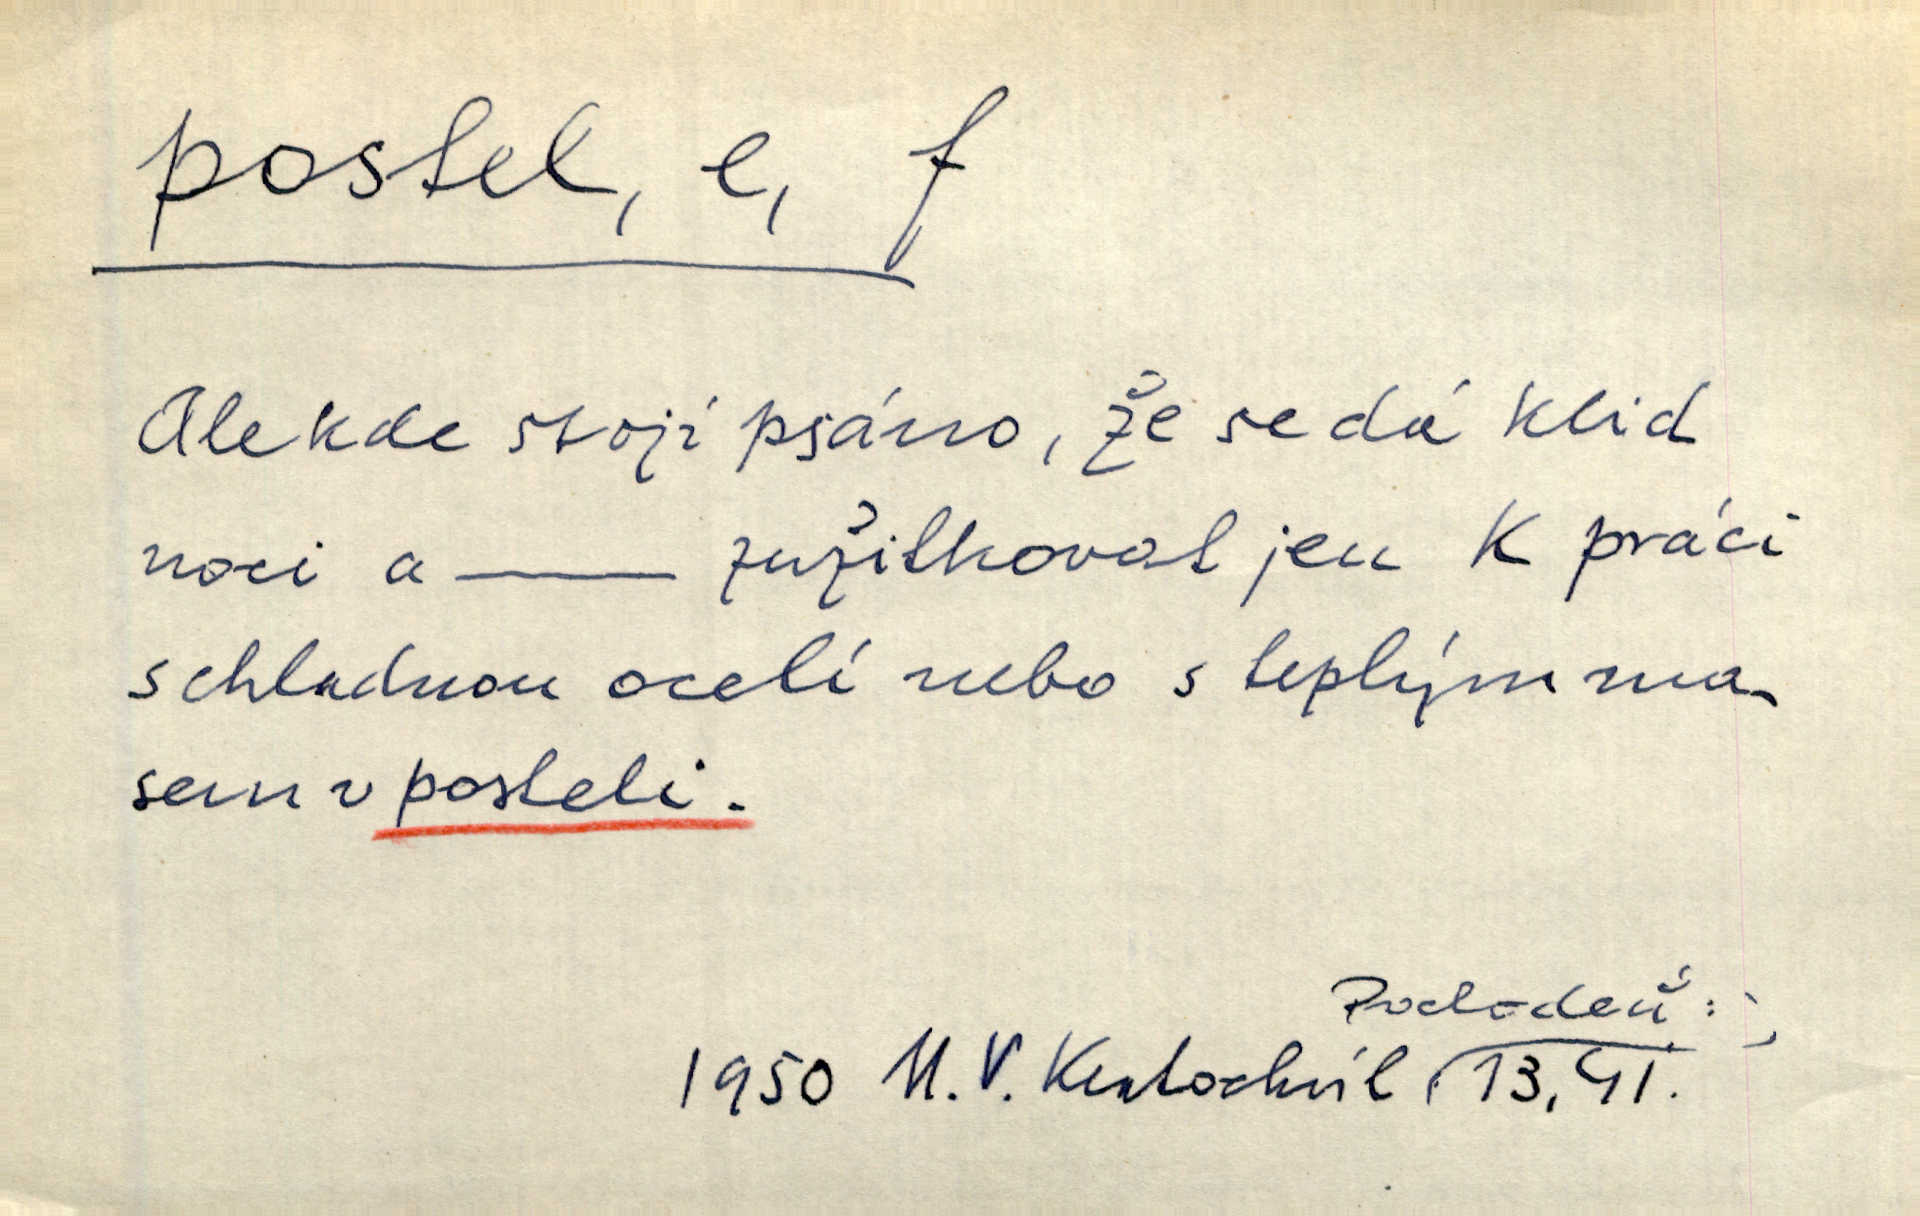 postel, e, f
Ale kde stojí psáno, že se dá klid
noci a —— zužitkovat jen k práci
s chladnou ocelí nebo s teplým ma-
sem v posteli.
1950 M. V. Kratochvíl 13, 41.